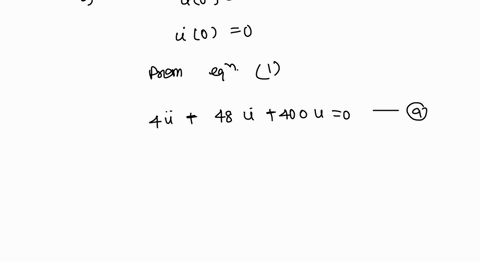 u̇(0) = 0
from eqⁿ. (1)
4ü + 48 u̇ + 400 u = 0 — (a)